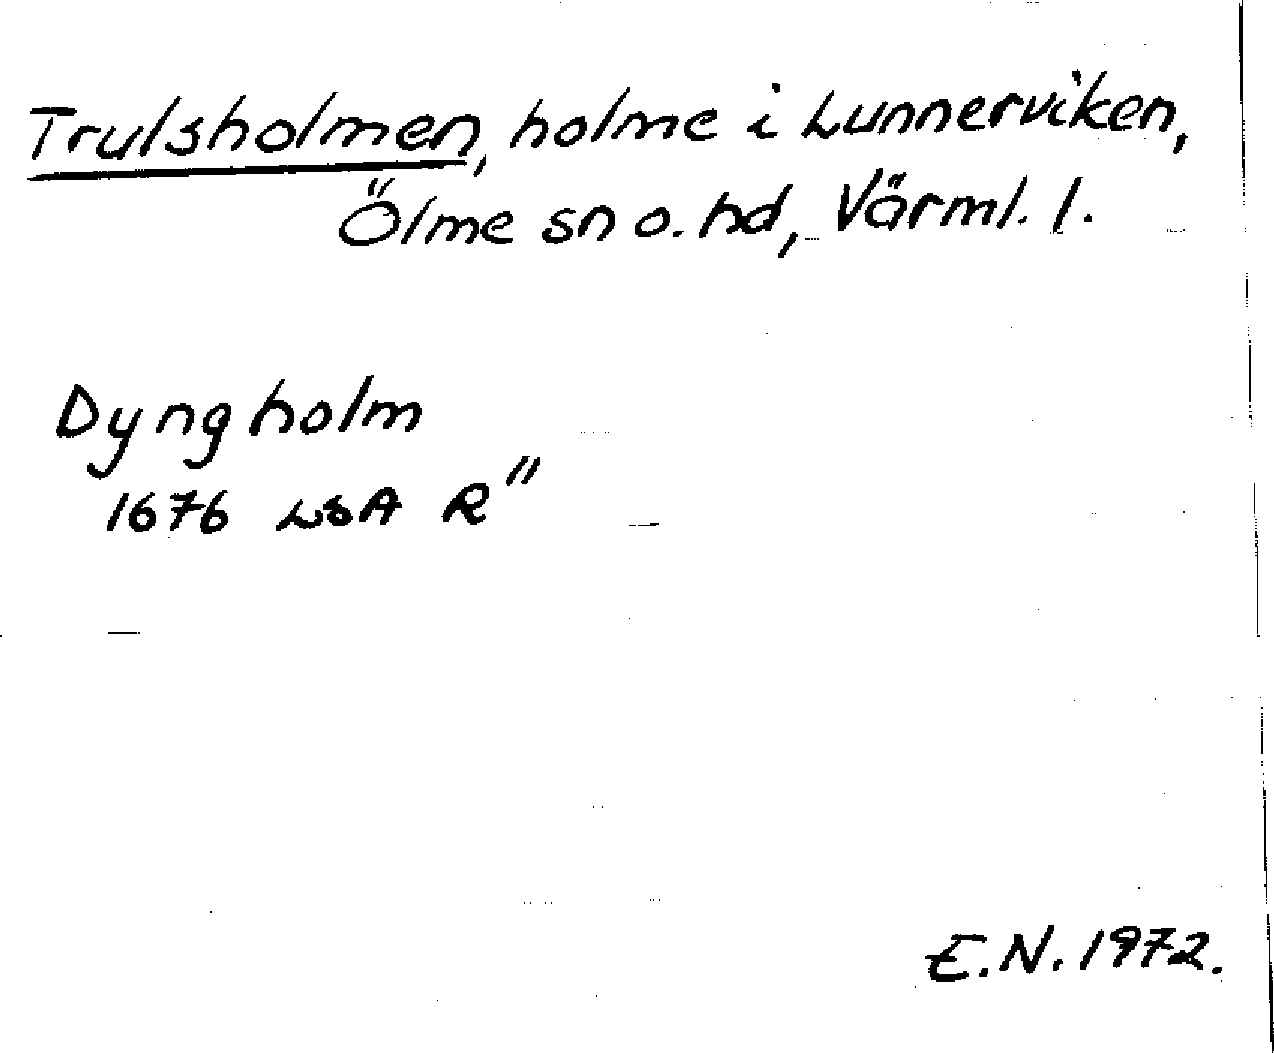 Trulsholmen, holme i Lunnerviken,
Ölme sn o. hd, Värml. l.
Dyngholm
1676 LSA R"
E.N. 1972.